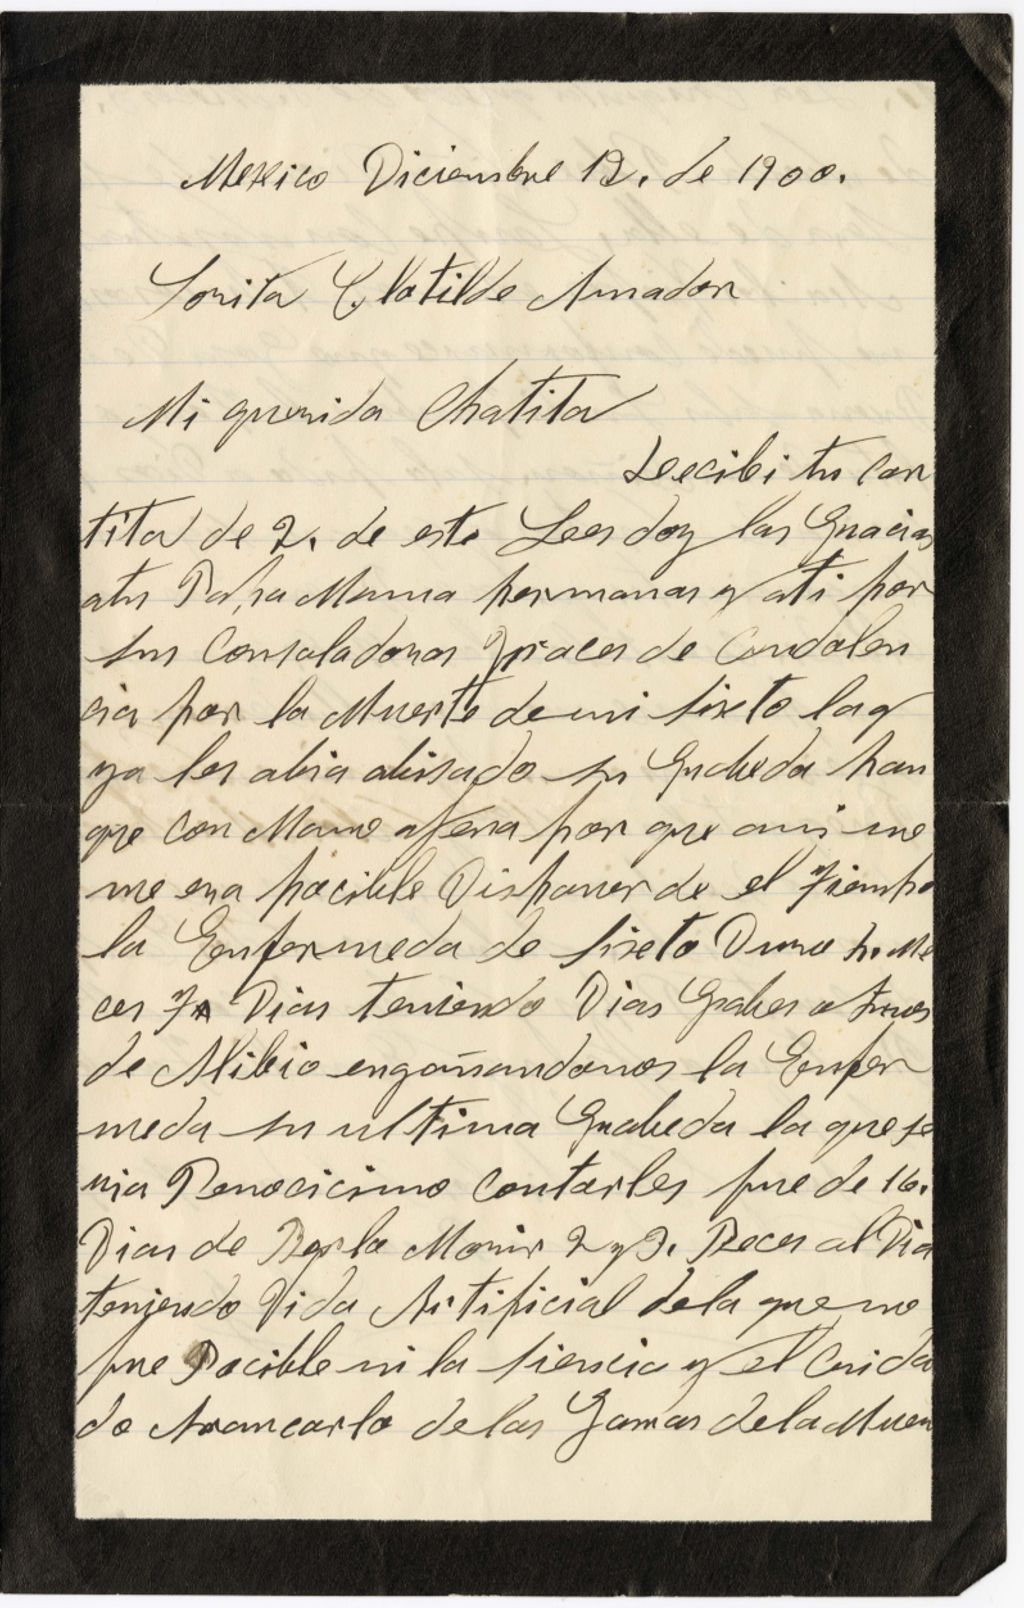 Mexico Diciembre 12. de 1900.
Sorita Clotilde Amador
Mi querida Chatita
Recibi tu Car
tita de 2. de este Les doy las Gracias
atu Papa Mama hermanas y ati por
sus Consoladoras Fraces de Condolen
cia por la Muerte de mi Sixto la q
ya les abia abisado su Grabeda han
que con Mano agena por que ami no
me era pocible Disponer de el Tiempo
la Enfermeda de Sixto Duro Me
ces Dias teniendo Dias Grabes otros
de Alibio engañandonos la Enfer
meda su ultima Grabeda la que se
ria Penocicimo Contarles fue de 16.
Dias de Berlo Morir 2 y 3. Beces al Dia
teniendo Vida Artificial dela que no
fue Pocible ni la Siencia y el Cuida
do Arancarlo de las Garras dela Muer